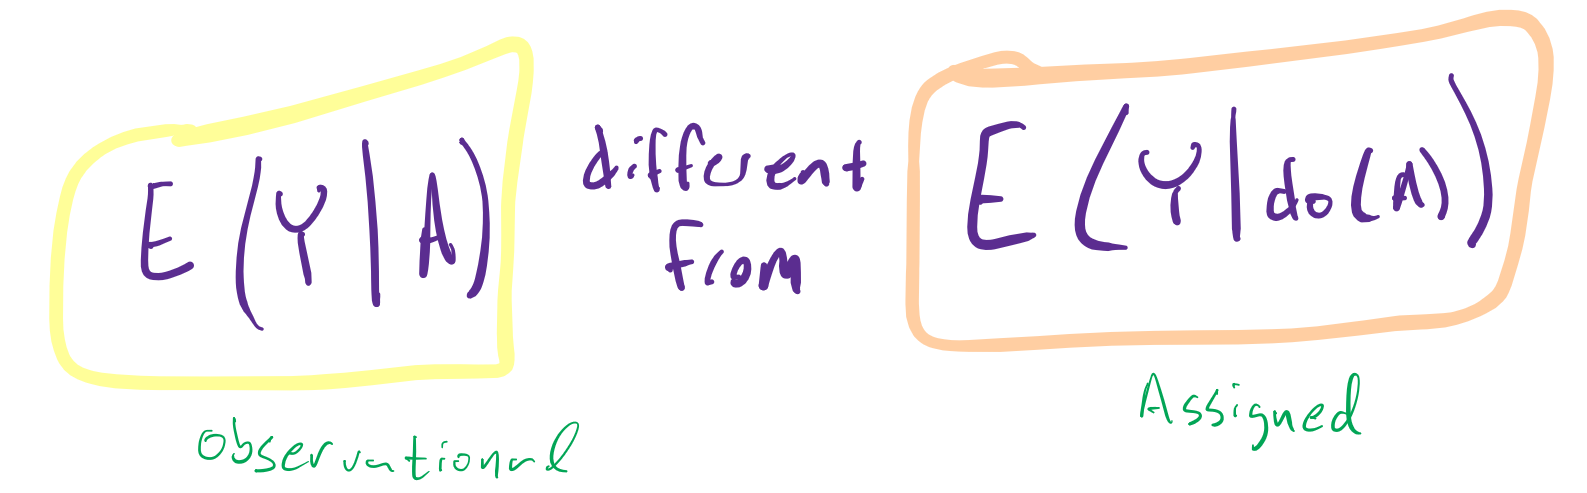 E(Y|A)
different
from
E(Y|do(A))
Observational
Assigned